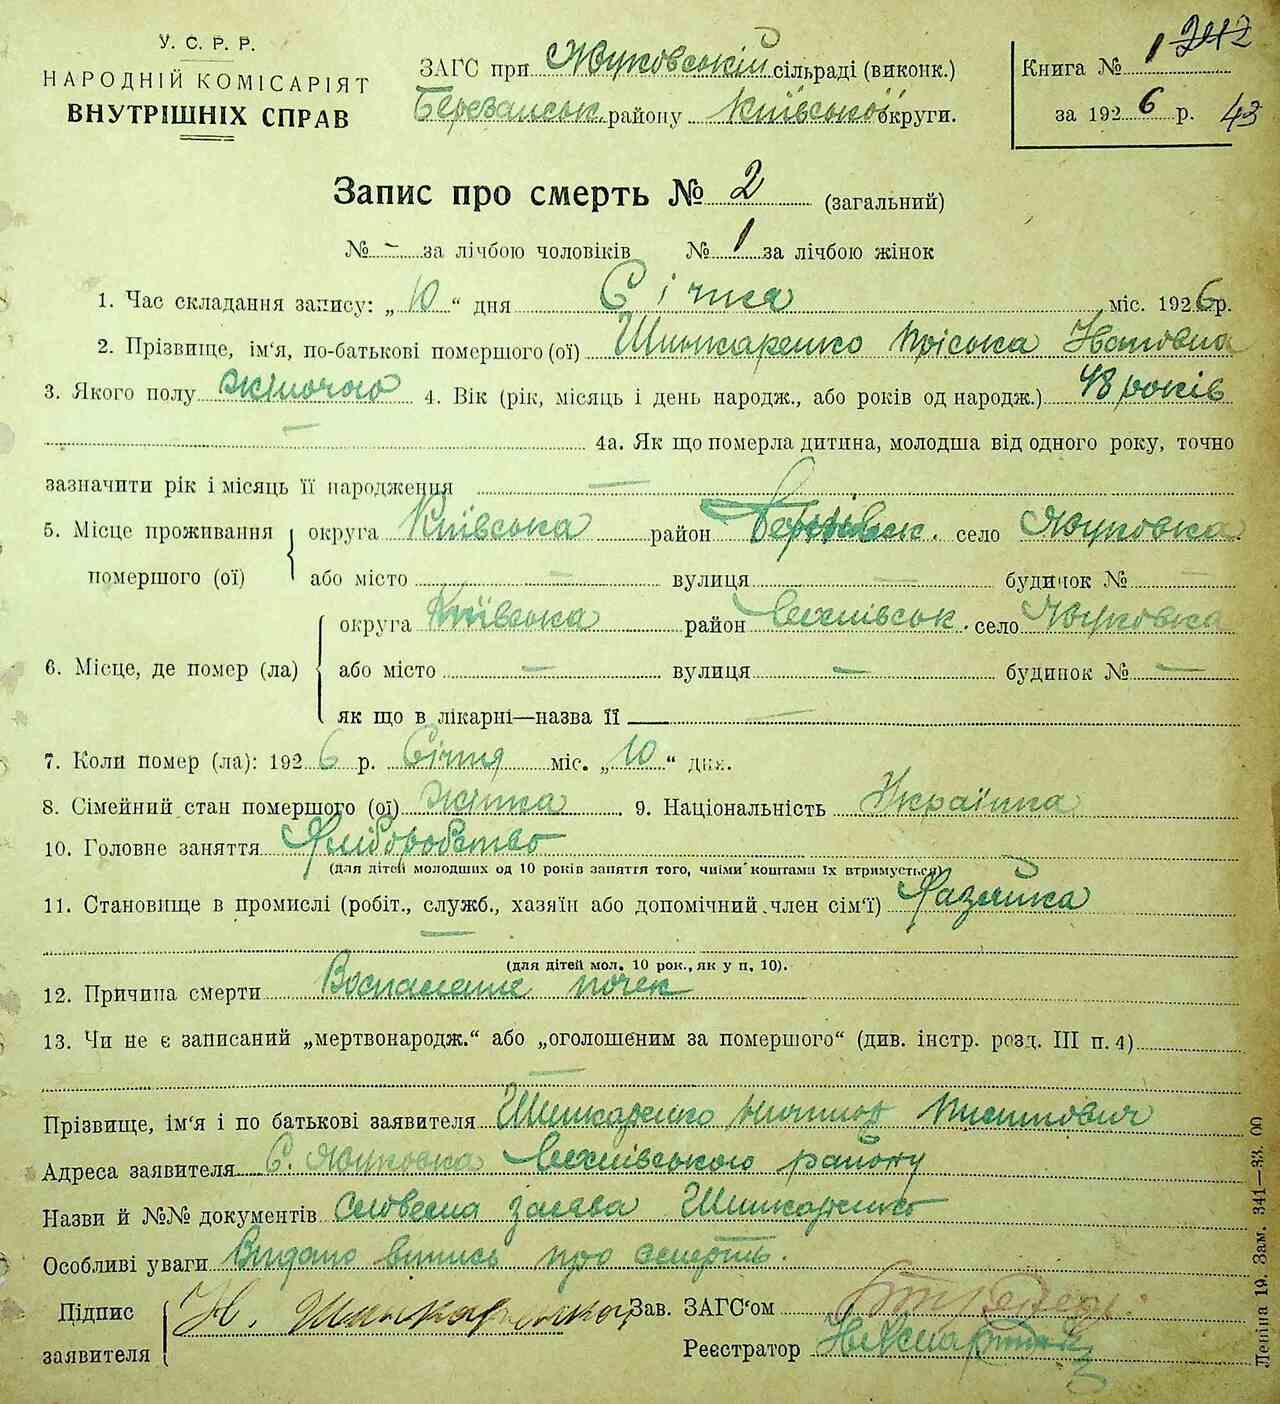 У. С. Р. Р.
НАРОДНІЙ КОМІСАРІЯТ
ВНУТРІШНІХ СПРАВ
ЗАГС при Жуковській сільраді (виконк.)
Березанськ. району Київської округи.
Книга № 1 242
за 1926 р. 43
Запис про смерть № 2 (загальний)
№ - за лічбою чоловіків № 1 за лічбою жінок
1. Час складання запису: „10“ дня Січня міс. 1926 р.
2. Прізвище, ім‘я, по-батькові помершого (ої) Шинкаренко Пріська Івановна
3. Якого полу жіночого 4. Вік (рік, місяць і день народж., або років од народж.) 48 років
4а. Як що померла дитина, молодша від одного року, точно
зазначити рік і місяць її народження —
5. Місце проживання помершого (ої) округа Київська район село Жуковка
або місто — вулиця — будинок № —
6. Місце, де помер (ла) округа Київська район село Жуковка
або місто — вулиця — будинок № —
як що в лікарні—назва її —
7. Коли помер (ла): 1926 р. Січня міс. „10“ дня.
8. Сімейний стан помершого (ої) жінка 9. Національність Українка
10. Головне заняття Хліборобство
(для дітей молодших од 10 років заняття того, чиїми коштами їх втримується)
11. Становище в промислі (робіт., служб., хазяїн або допомічний член сім‘ї) Хазяйка
—
(для дітей мол. 10 рок., як у п. 10).
12. Причина смерти Воспаление почек
13. Чи не є записаний „мертвонародж.“ або „оголошеним за помершого“ (див. інстр. розд. III п. 4)
—
Прізвище, ім‘я і по батькові заявителя Шинкаренко
Адреса заявителя С. Жуковка району
Назви й №№ документів Словесна заява Шинкаренко
Особливі уваги Видано випись про смерть.
Підпис заявителя Н. Шинкаренко
Зав. ЗАГС‘ом
Реєстратор
Леніна 19. Зам. 341—33. 00